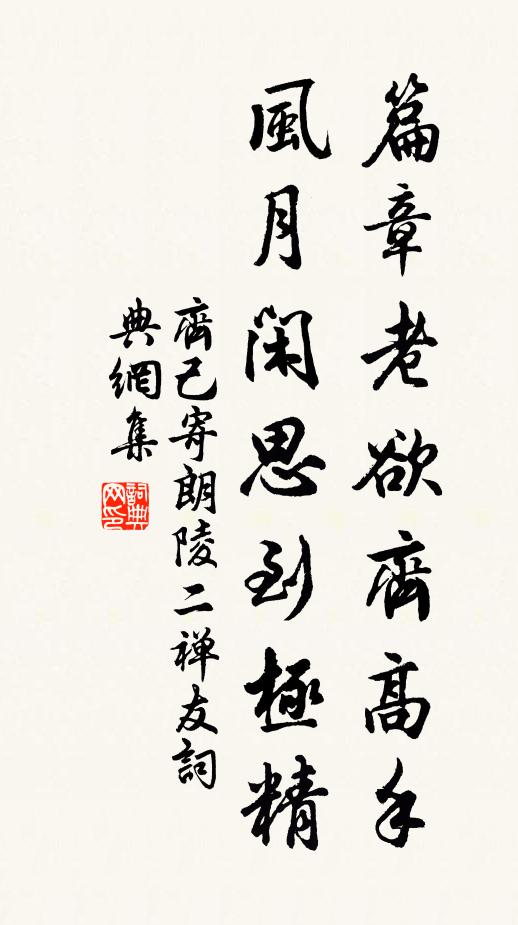 篇章老欲齊高手
風月閑思到極精
齊己寄朗陵二禅友詞
典網集
詞典网印